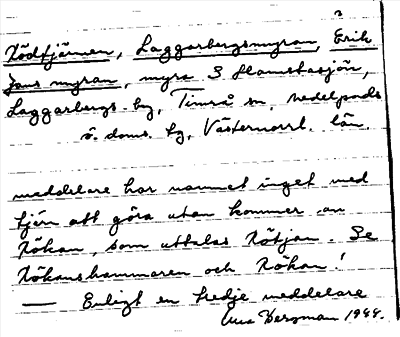 2
Ködtjärnen, Laggarbergsmyran, Erik
Jons myran, myra S Hamstasjön,
Laggarbergs by, Timrå sn, Medelpads
ö. doms. tg, Västernorrl. län.
meddelare har namnet inget med
tjärn att göra utan kommer av
Kökan, som uttalas Kötjan. Se
Kökanshammaren och Kökan!
— Enligt en tredje meddelare
Bergman 1944.